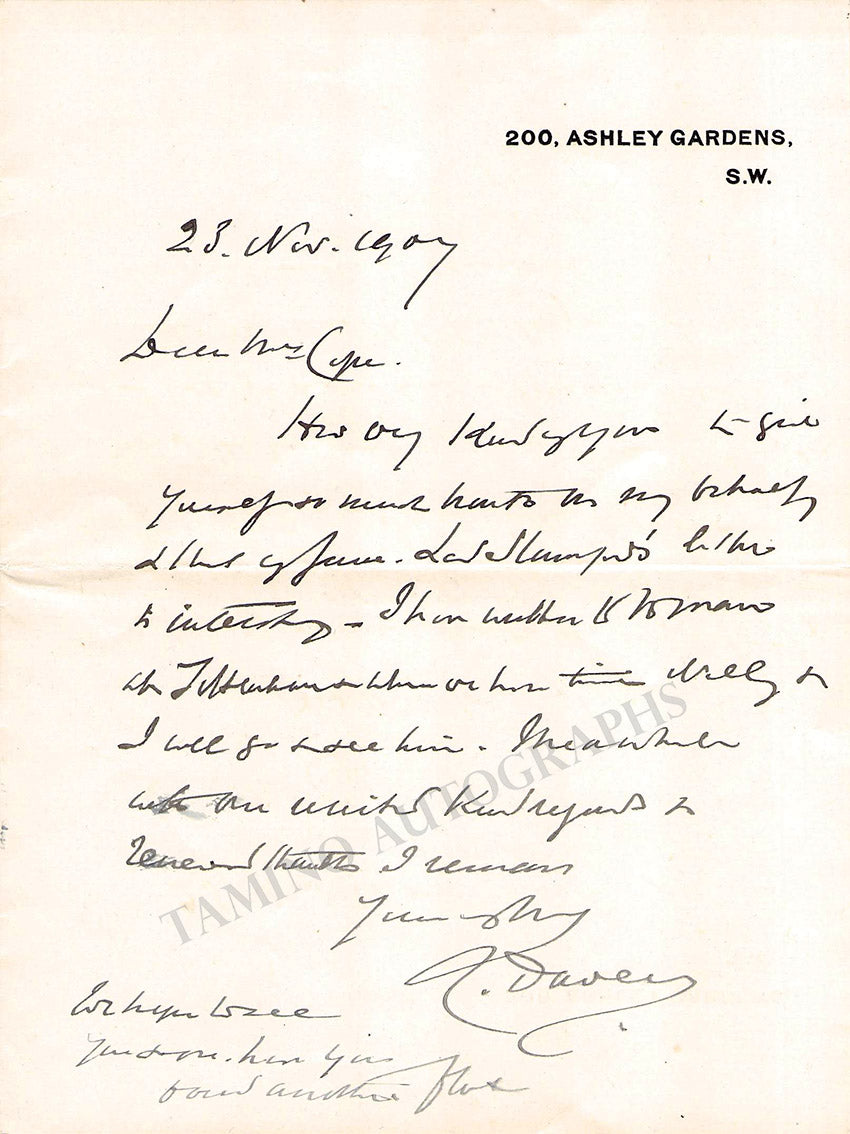 200, ASHLEY GARDENS,
S.W.
23. Nov. 1907
Dear Mrs Cope.
How very kind of you to give
yourself so much trouble on my behalf
& that of Jane. Lord 's letter
is interesting - I have written to
at & when we have time Nelly &
I will go & see him. Meanwhile
with our united kind regards &
renewed thanks I remain
Yours
. Davey
TAMINO AUTOGRAPHS
We hope to see
you soon. have you
found another flat